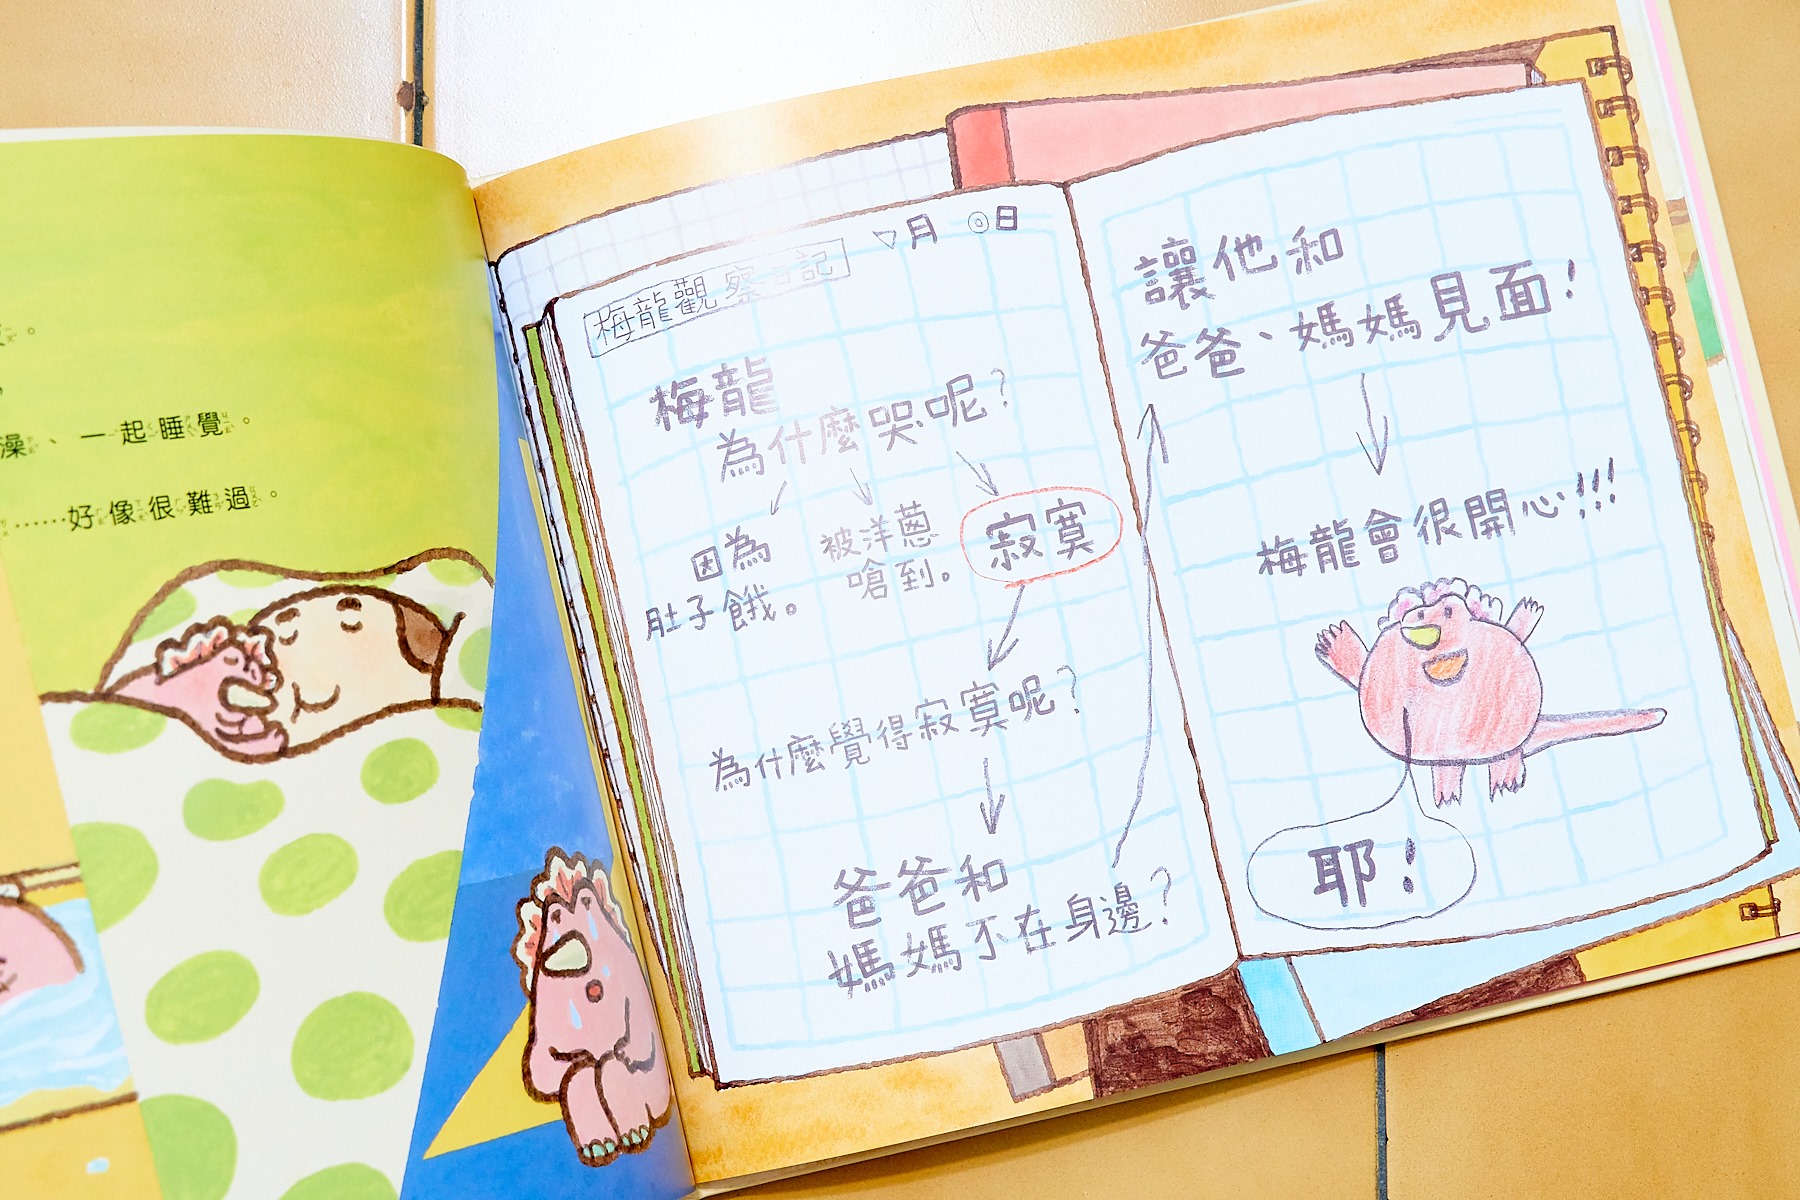 澡、一起睡覺。
……好像很難過。
▽月 ◎日
梅龍觀察日記
梅龍
為什麼哭呢?
因為
肚子餓。
被洋蔥
嗆到。
寂寞
為什麼覺得寂寞呢?
爸爸和
媽媽不在身邊?
讓他和
爸爸、媽媽見面!
梅龍會很開心!!!
耶!